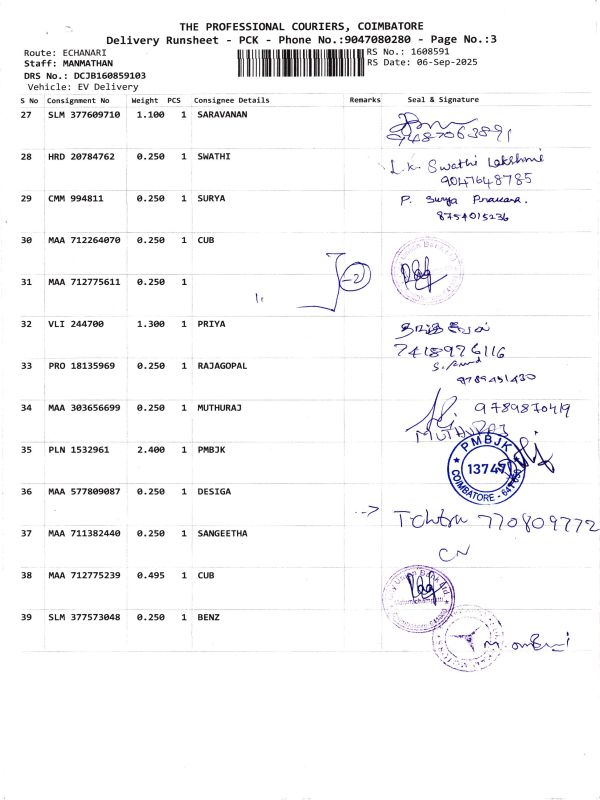 THE PROFESSIONAL COURIERS, COIMBATORE
Delivery Runsheet - PCK - Phone No.:9047080280 - Page No.:3
Route: ECHANARI
Staff: MANMATHAN
DRS No.: DCJB160859103
Vehicle: EV Delivery
RS No.: 1608591
RS Date: 06-Sep-2025
S No Consignment No Weight PCS Consignee Details Remarks Seal & Signature
27 SLM 377609710 1.100 1 SARAVANAN
28 HRD 20784762 0.250 1 SWATHI L.K. Swathi Lakshmi
9047648785
29 CMM 994811 0.250 1 SURYA P. Surya
8754015236
30 MAA 712264070 0.250 1 CUB
31 MAA 712775611 0.250 1 -2
32 VLI 244700 1.300 1 PRIYA
7418976116
33 PRO 18135969 0.250 1 RAJAGOPAL
34 MAA 303656699 0.250 1 MUTHURAJ 9789870419
MUTHURAJ
35 PLN 1532961 2.400 1 PMBJK PMBJK
COIMBATORE
36 MAA 577809087 0.250 1 DESIGA
770809772
37 MAA 711382440 0.250 1 SANGEETHA
38 MAA 712775239 0.495 1 CUB
39 SLM 377573048 0.250 1 BENZ